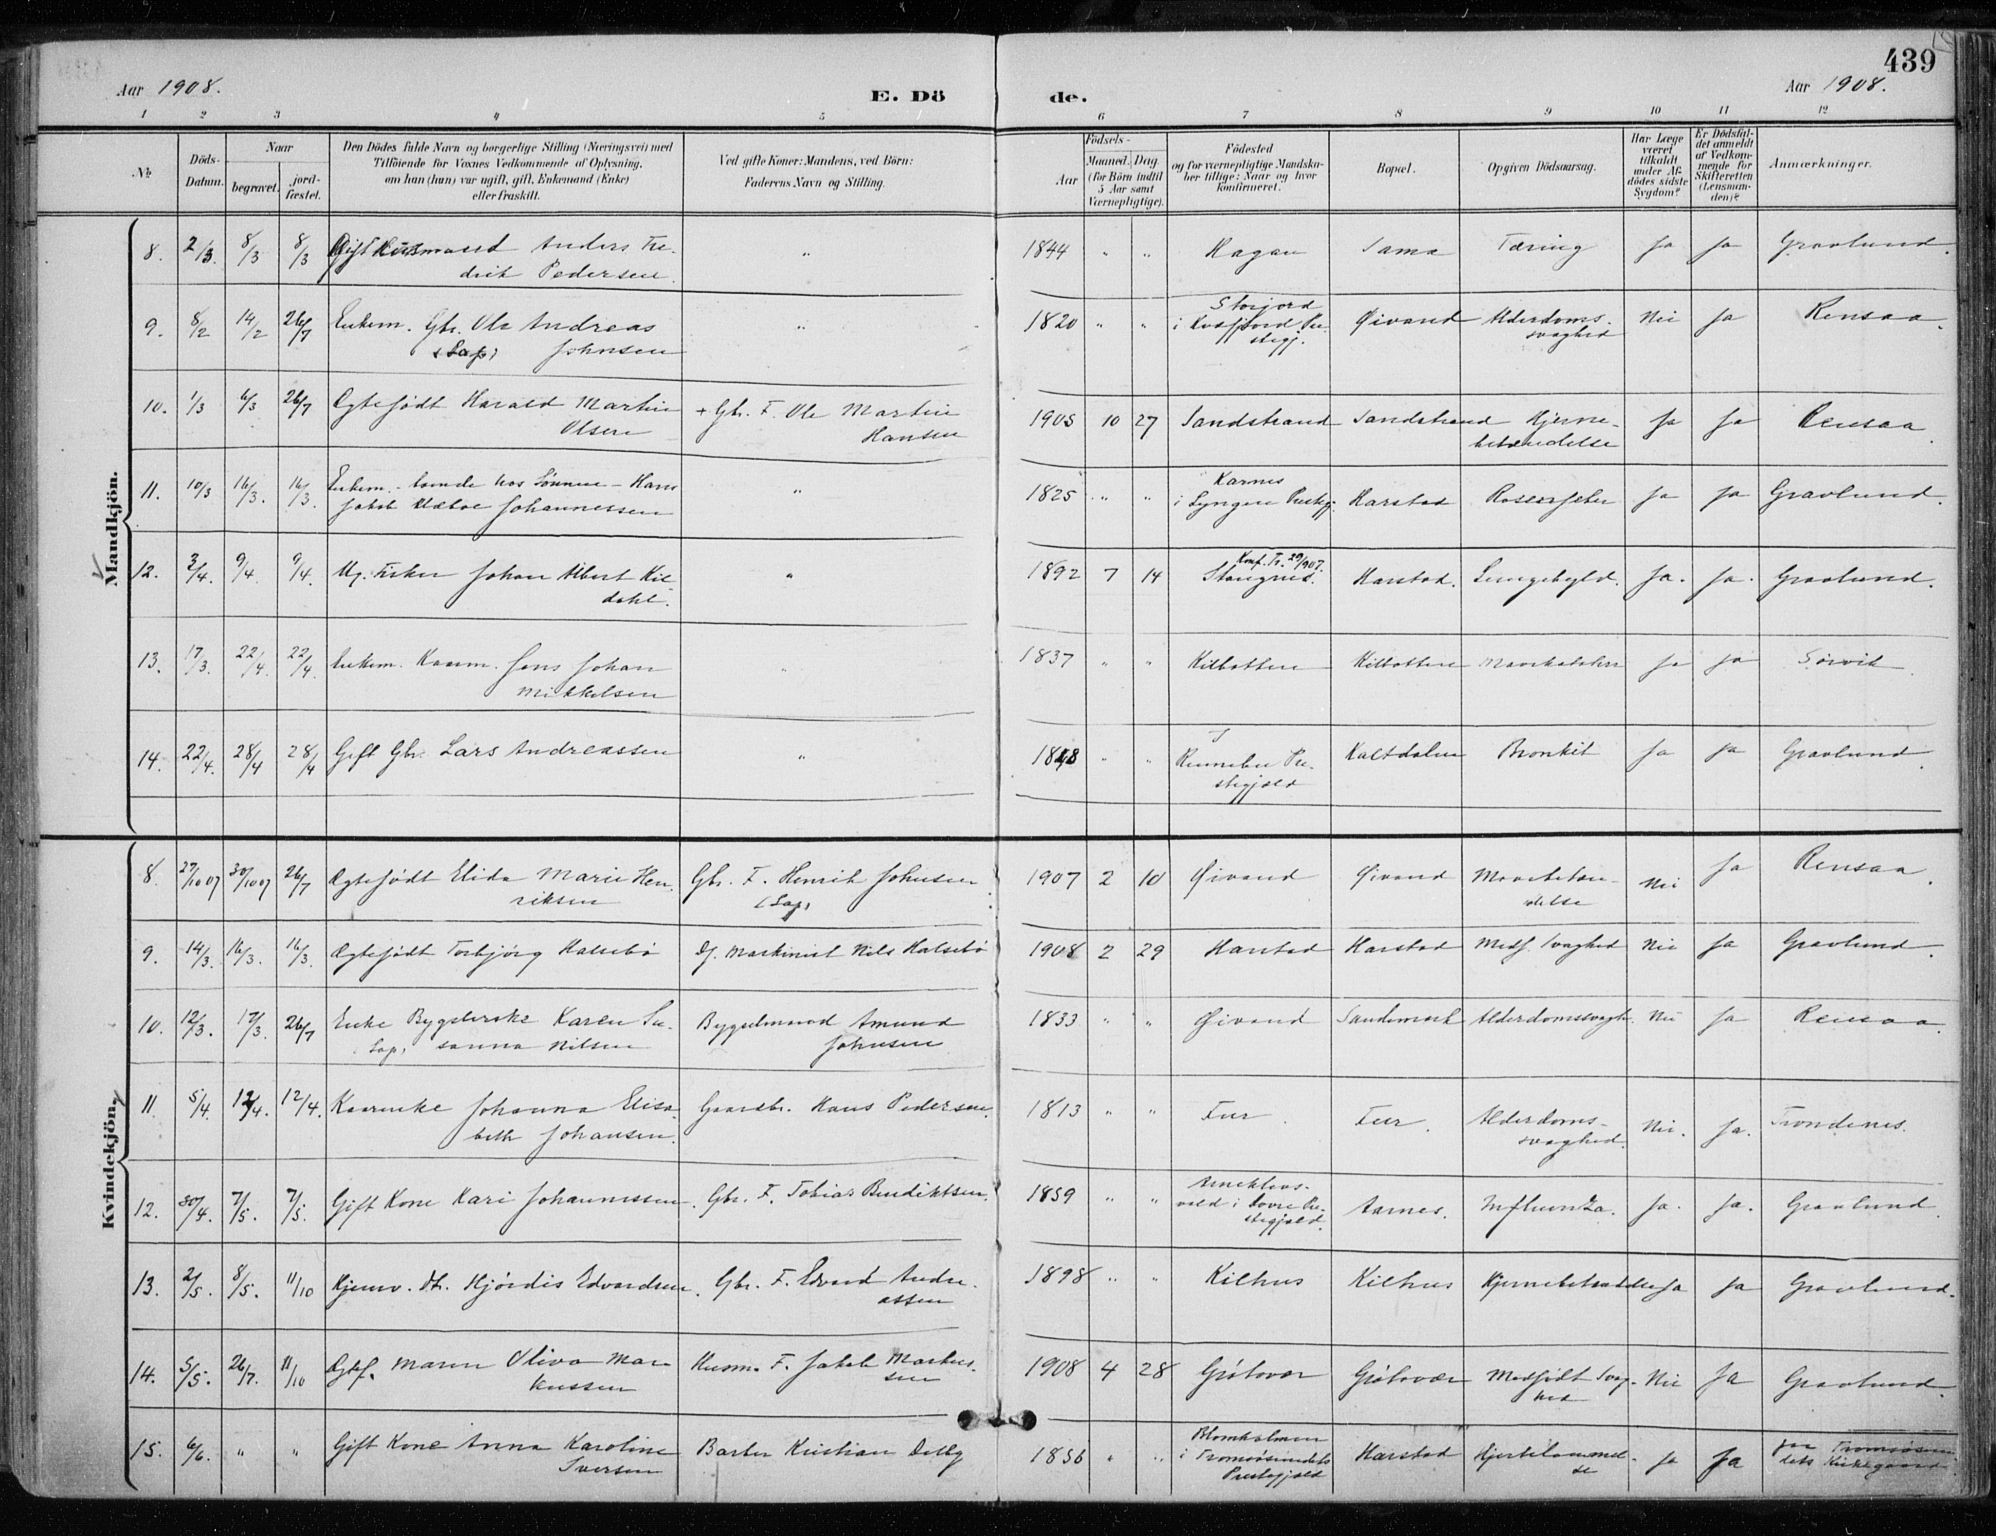 439
Aar 1908.
E. Dö
de.
Aar 1908.
1 2 3 4 5 6 7 8 9 10 11 12
No.
Döds-Datum.
Naar
begravet.
jord-fæstet.
Den Dödes fulde Navn og borgerlige Stilling (Næringsvei) med
Tilföiende for Voxnes Vedkommende af Oplysning,
om han (hun) var ugift, gift, Enkemand (Enke)
eller fraskilt.
Ved gifte Koner: Mandens, ved Börn:
Faderens Navn og Stilling.
Födsels-
Aar
Maaned. Dag.
(for Börn indtil
5 Aar samt
Værnepligtige).
Födested
og for værnepligtige Mandska-
ber tillige: Naar og hvor
konfirmeret.
Bopæl.
Opgiven Dödsaarsag.
Har Læge
været
tilkaldt
under Af-
dödes sidste
Sygdom?
Er Dödsfal-
det anmeldt
af Vedkom-
mende for
Skifteretten
(Lensman-
den)?
Anmærkninger.
Mandkjön.
8. 2/3. 8/3 8/3 Gift Husmand Anders Fre-
drik Pedersen " 1844 " " Hagan Sama Tæring Ja Ja Gravlund.
9. 8/2 14/2 26/7 Enkem. Gbr. Ole Andreas
(Lap) Johnsen " 1820 " " Storjord
i Kvæfjord Pre-
stegj. Öivand Alderdoms-
svaghed Nei Ja Rensaa.
10. 1/3 6/3 26/7 Ægtefödt Harald Martin
Olsen + Gbr. F. Ole Martin
Hansen 1905 10 27 Sandstrand Sandstrand Hjerne-
betændelse Ja Ja Rensaa.
11. 10/3 16/3. 16/3. Enkem. - boende hos Sönnen - Hans
Jakob Johannessen " 1825 " " Karnes
i Lyngen Prestegj. Harstad Rosenfeber Ja Ja Gravlund.
12. 3/4. 9/4. 9/4. Ug. Fisker Johan Albert Kil-
dahl. " 1892 7 14 Konf. Tr. 29/907.
Stangnes. Harstad. Lungebyld. Ja. Ja. Gravlund.
13. 17/3. 22/4. 22/4. Enkem. Kaarm. Jens Johan
Mikkelsen " 1837 " " Kilbotten Kilbotten Mavekatahr Ja Ja Sörvik
14. 22/4. 28/4 28/4 Gift Gbr. Lars Andreassen " 1848 " " I
Rennebu Pre-
stegjæld Kaltdalen Bronkit Ja Ja Gravlund.
Kvindekjön.
8. 27/10 07 30/10 07 26/7 Ægtefödt Elida Marie Hen-
riksen Gbr. F. Henrik Johnsen
(Lap) 1907 2 10 Öivand Öivand Mavebetæn-
delse Nei Ja Rensaa.
9. 14/3. 16/3. 16/3. Ægtefödt Torbjörg Halsebö Df. Maskinist Nils Halsebö 1908 2 29 Harstad Harstad Medf. Svaghed Nei Ja Gravlund.
10. 12/3. 17/3. 26/7 Enke Bygslerske Karen Su-
Lap, sanna Nilsen Bygselmand Amund
Johnsen 1833 " " Öivand Sandemark Alderdomssvagh. Nei Ja Rensaa.
11. 5/4. 12/4. 12/4. Kaarenke Johanna Elisa-
beth Johansen. Gaardbr. Hans Pedersen. 1813 " " Fur. Fur. Alderdoms-
svaghed. Nei. Ja. Trondenes.
12. 30/4. 7/5. 7/5. Gift Kone Kari Johannessen. Gbr. F. Tobias Bendiktsen. 1859 " "
vold i Dovre Pre-
stegjæld. Aarnes. Influenza. Ja. Ja. Gravlund.
13. 2/5. 8/5. 11/10 Hjemv. Dt. Hjördis Edvardsen. Gbr. F. Edvard Andre-
assen 1898 " " Kilhus Kilhus Hjernebetændelse Ja Ja Gravlund.
14. 5/5. 26/7. 11/10 Ægtef. Maren Oliva Mar-
kussen Husm. F. Jakob Markus-
sen 1908 4 28 Grötavær Grötavær Medfödt Svag-
hed Nei Ja Gravlund.
15. 6/6. " " Gift Kone Anna Karoline
Iversen Barber Kristian Dolby 1856 " " Blomholmen
i Tromsösundets
Prestegjæld Harstad Hjertelammel-
se Ja Ja paa Tromsösun-
dets Kirkegaard